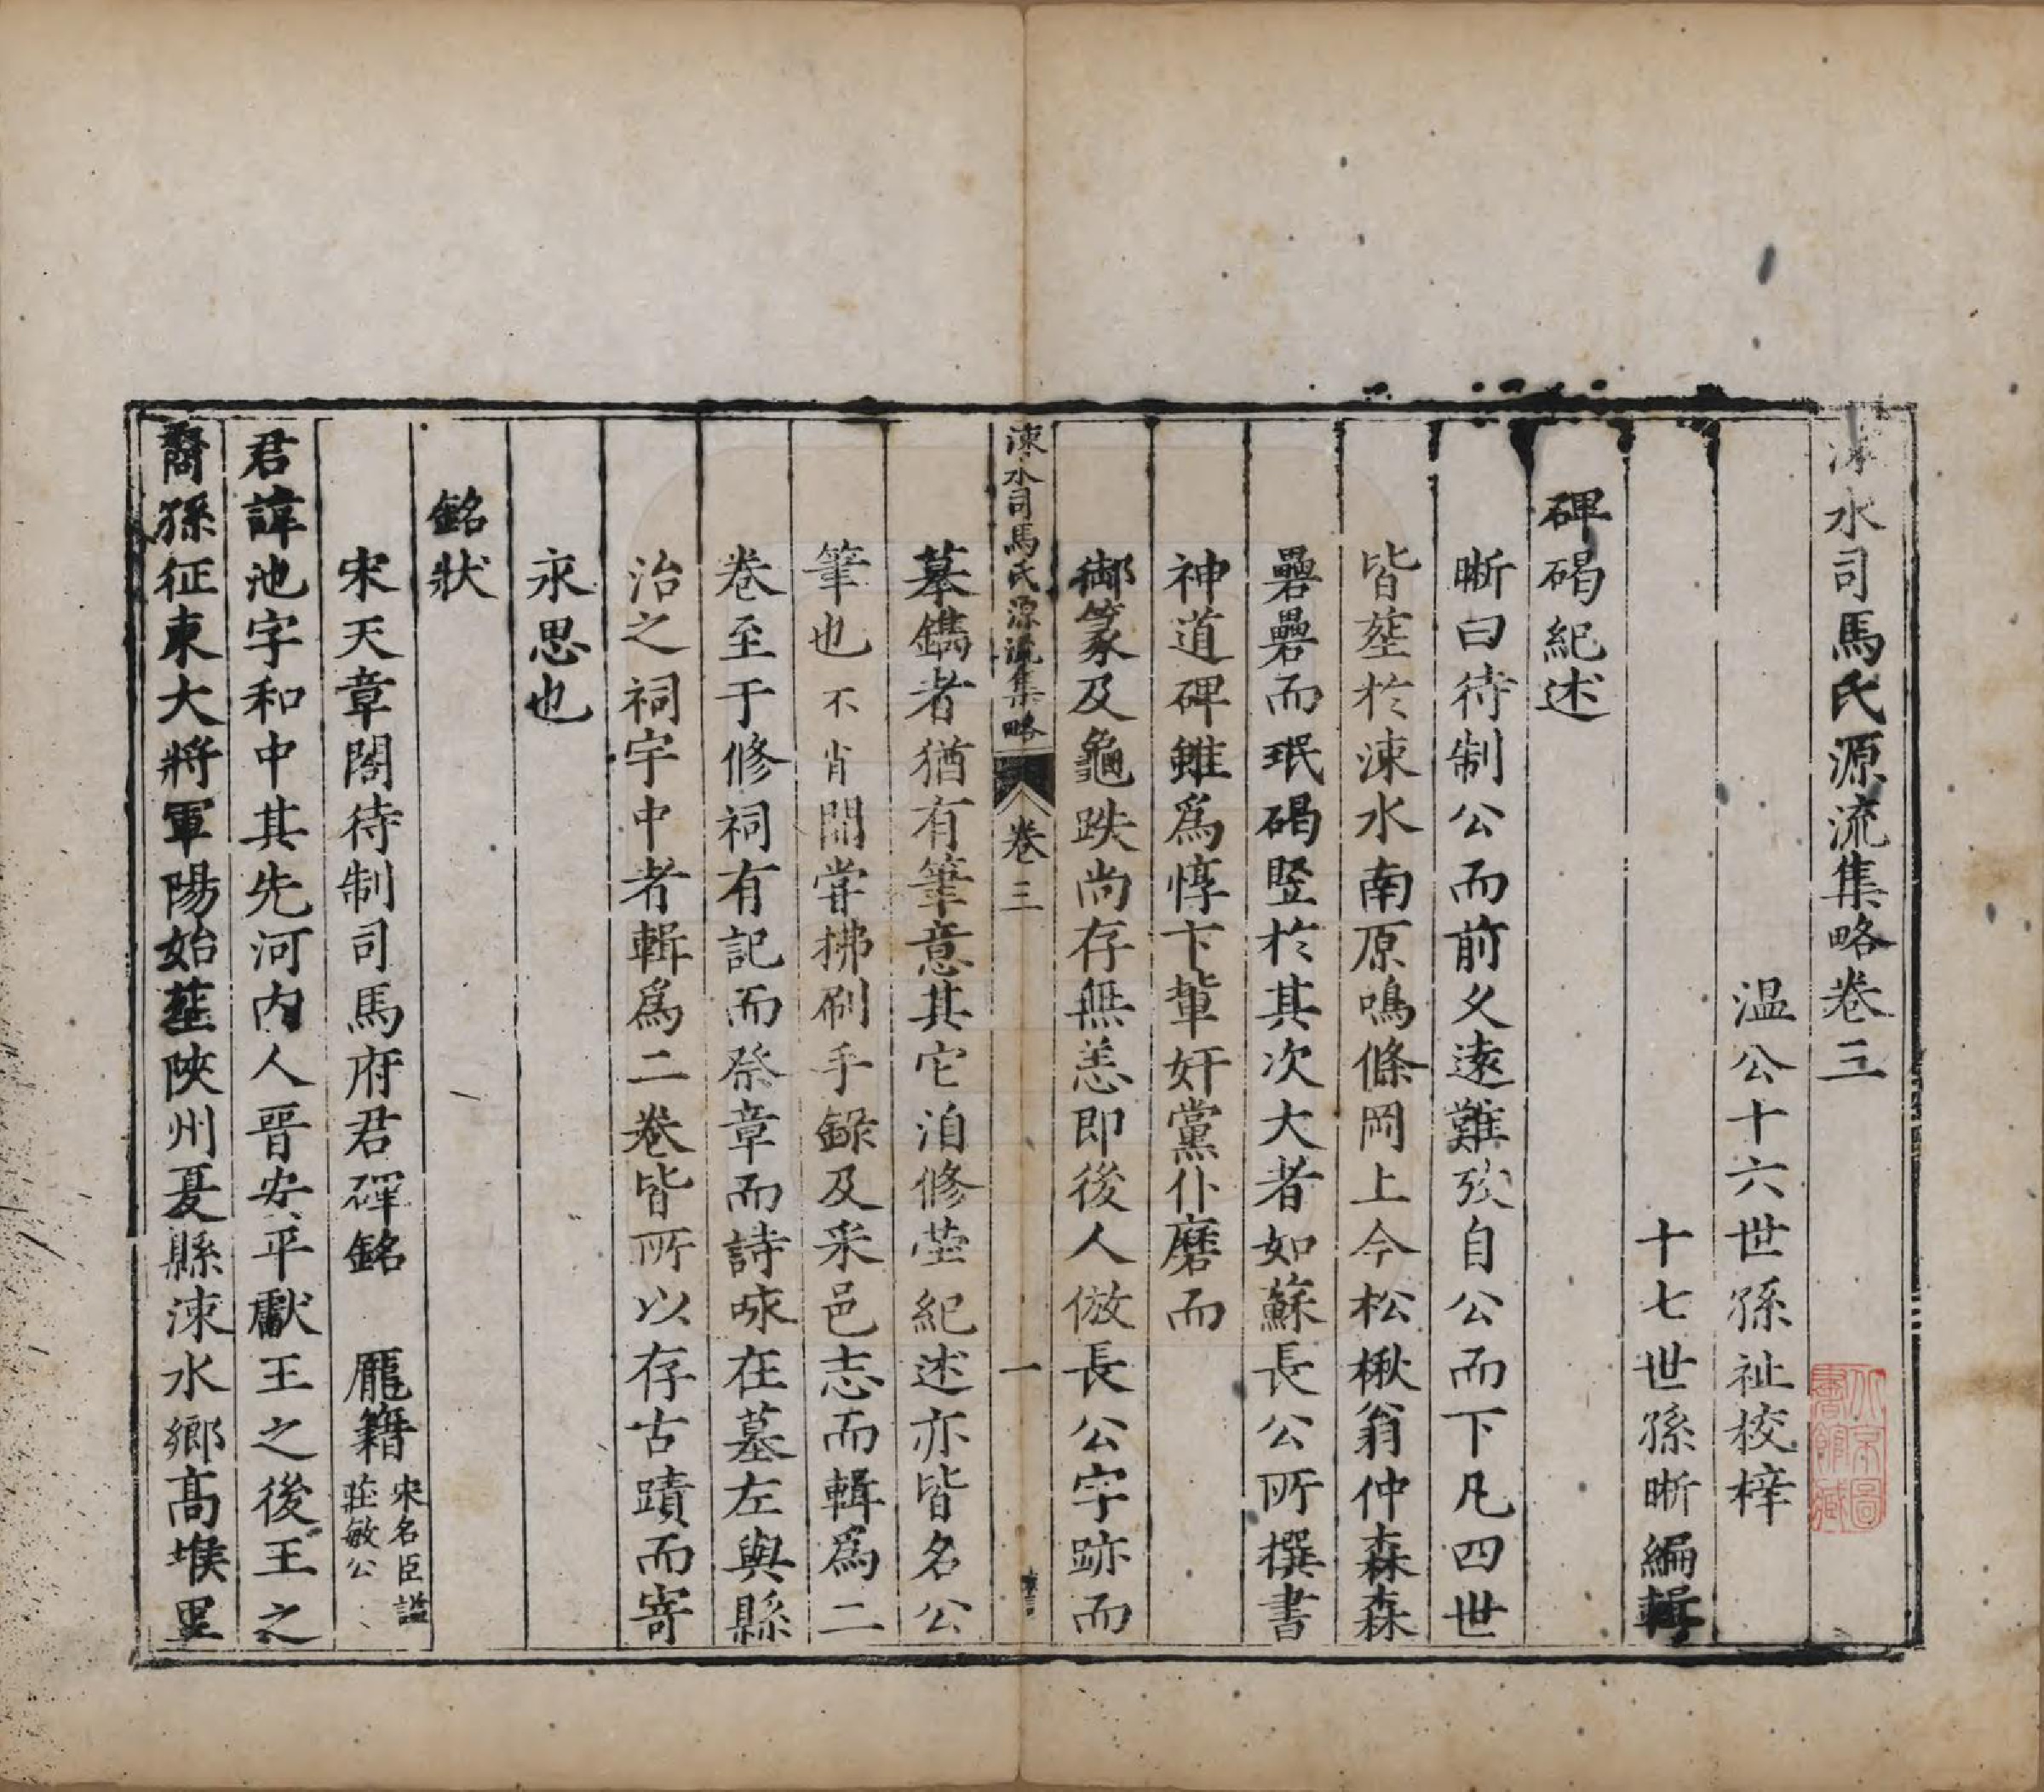 涑水司馬氏源流集略卷三
温公十六世孫祉校梓
十七世孫晣編輯
碑碣紀述
晣曰待制公而前乆遠難攷自公而下凡四世
皆塟於涑水南原鳴條岡上今松楸翁仲森森
礨礨而珉碣竪於其次大者如蘇長公所撰書
神道碑雖爲惇卞輩奸黨仆磨而
御篆及龜趺尚存無恙即後人倣長公字跡而
摹鐫者猶有筆意其它洎修塋紀述亦皆名公
筆也不肖間甞拂刷手錄及采邑志而輯爲二
卷至于修祠有記而祭章而詩咏在墓左與縣
治之祠宇中者輯爲二卷皆所以存古蹟而寄
永思也
銘狀
宋天章閣待制司馬府君碑銘 龐籍 宋名臣謚莊敏公
君諱池字和中其先河内人晉安平獻王之後王之
裔孫征東大將軍陽始塟陝州夏縣涑水鄉高堠里
涑水司馬氏源流集略 卷三 一